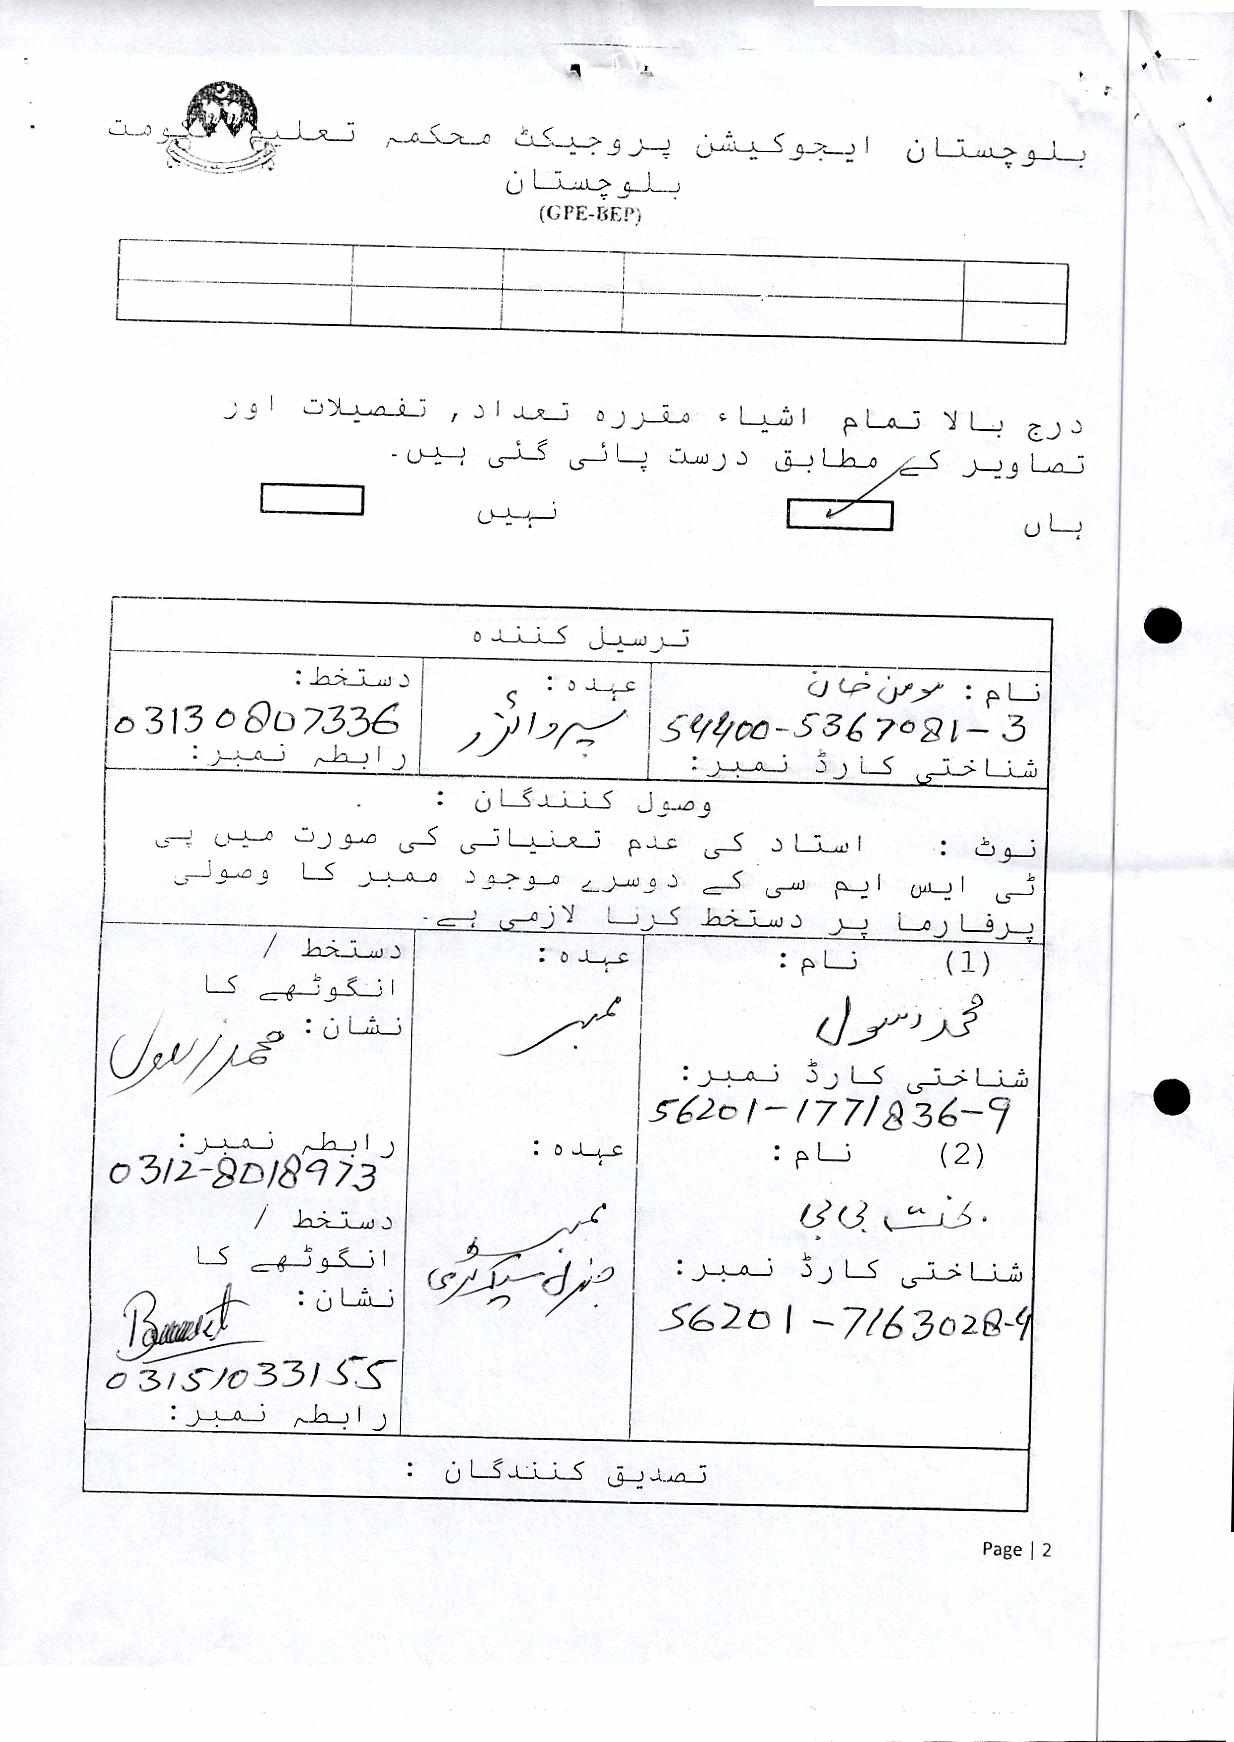 بلوچستان ایجوکیشن پروجیکٹ محکمہ تعلیم
بلوچستان
(GPE-BEP)
درج بالا تمام اشیاء مقررہ تعداد, تفصیلات اور
تصاویر کے مطابق درست پائی گئی ہیں۔
ہاں نہیں
ترسیل کنندہ
نام: مومن خان عہدہ: دستخط:
54400-5367081-3 سپروائزر 03130807336
شناختی کارڈ نمبر: رابطہ نمبر:
وصول کنندگان :
نوٹ : استاد کی عدم تعنیاتی کی صورت میں پی
ٹی ایس ایم سی کے دوسرے موجود ممبر کا وصولی
پرفارما پر دستخط کرنا لازمی ہے۔
(1) نام: عہدہ: دستخط /
انگوٹھے کا
محمد رسول ممبر نشان: محمد رسول
شناختی کارڈ نمبر:
56201-1771836-9
رابطہ نمبر:
0312-8018973
(2) نام: عہدہ:
دستخط /
بی بی ممبر
انگوٹھے کا
جنرل سیکرٹری
شناختی کارڈ نمبر: نشان:
56201-7163028-4
03151033155
رابطہ نمبر:
تصدیق کنندگان :
Page | 2